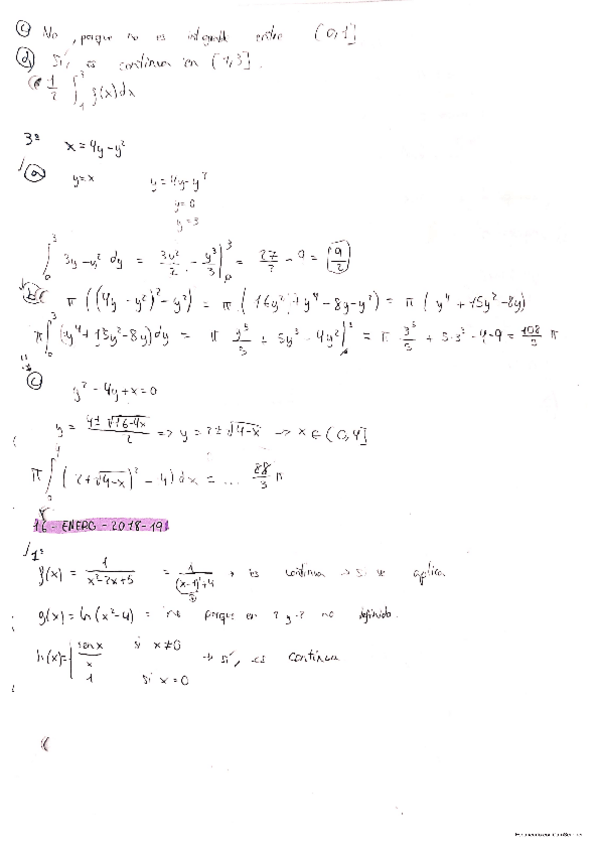 c) No, porque no es integrable entre (0,1]
d) Sí, es continua en [1,3].
1/2 ∫₁³ f(x)dx
3º x = 4y-y²
a) y=x y = 4y-y²
y=0
y=3
∫₀³ 3y-y² dy = 3y²/2 - y³/3 |₀³ = 27/2 - 0 = 9/2
b) π((4y-y²)²-y²) = π(16y²+y⁴-8y-y²) = π(y⁴+15y²-8y)
π∫₀³ (y⁴+15y²-8y)dy = π y⁵/5 + 5y³ - 4y²|³ = π 3⁵/5 + 5·3³ - 4·9 = 108/5 π
c) y²-4y+x=0
y = 4±√16-4x / 2 => y = 2±√4-x -> x ∈ (0,4]
π∫ (2+√4-x)² - 4) dx = ... 88/3 π
16 - ENERO - 2018-19
1º
f(x) = 1/x²-2x+5 = 1/(x-1)²+4 → es continua → sí se aplica
g(x) = ln(x²-4) = no porque en 2 y -2 no definido.
h(x) = { senx/x si x≠0 → sí, es continua
1 si x=0